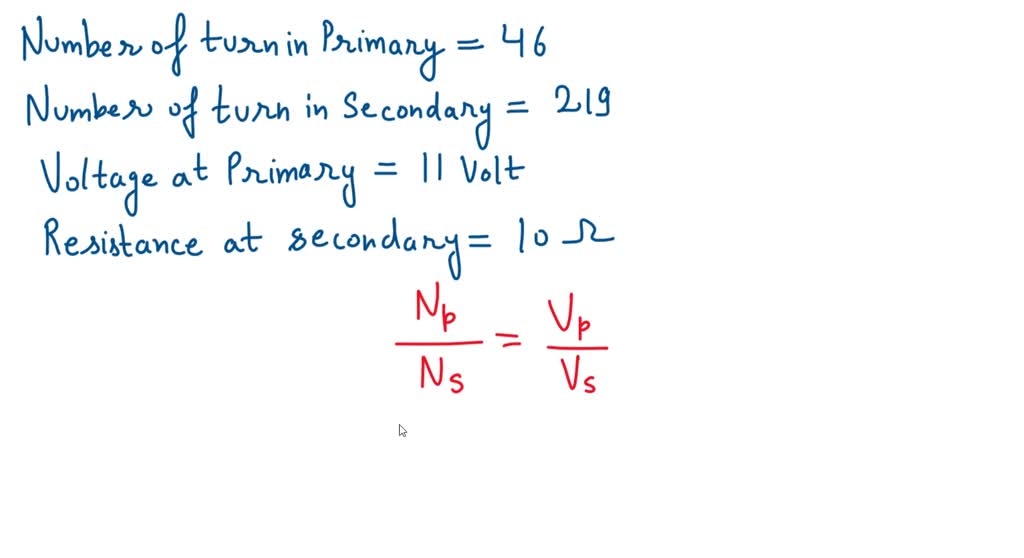 Number of turn in Primary = 46
Number of turn in Secondary = 219
Voltage at Primary = 11 Volt
Resistance at secondary = 10 Ω
Np/Ns = Vp/Vs